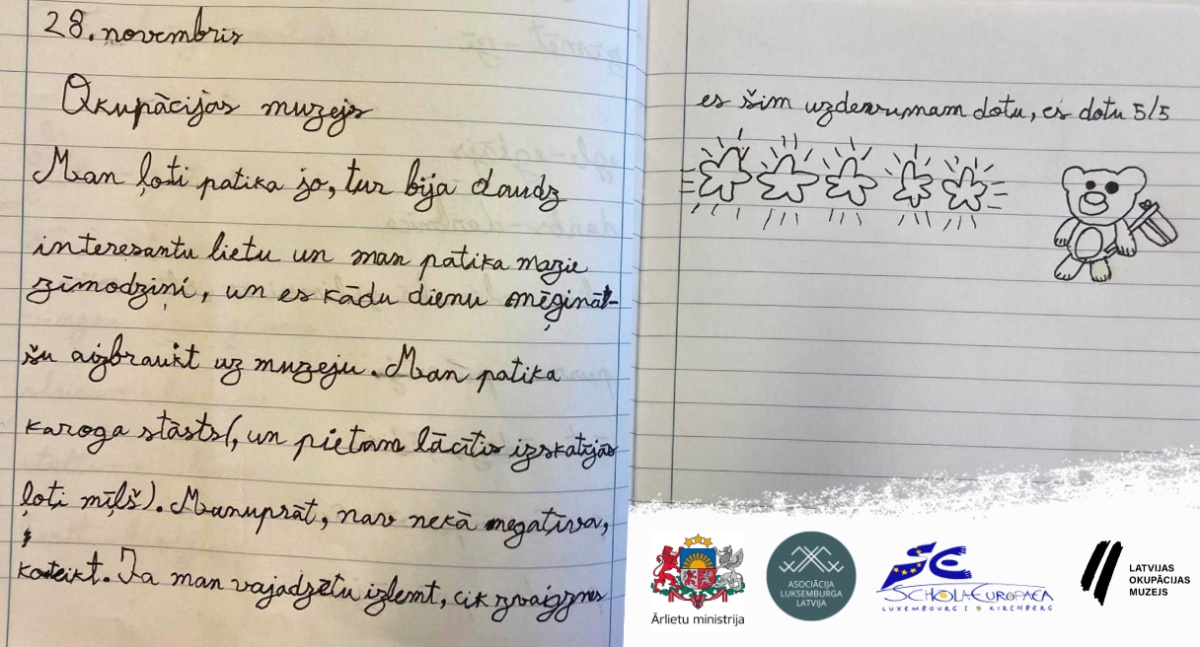 28. novembris
Okupācijas muzejs
Man ļoti patika jo, tur bija daudz
interesantu lietu un man patika mazie
zīmodziņi, un es kādu dienu mēģināt-
šu aizbraukt uz muzeju. Man patika
karoga stāsts(, un pietam lācītis izskatījās
ļoti mīļš). Manuprāt, nav nekā negatīva,
ko teikt. Ja man vajadzētu izlemt, cik zvaigznes
es šim uzdevumam dotu, es dotu 5/5
Ārlietu ministrija
ASOCIĀCIJA
LUKSEMBURGA
LATVIJA
SCHOLA EUROPAEA
LUXEMBOURG I KIRCHBERG
LATVIJAS
OKUPĀCIJAS
MUZEJS